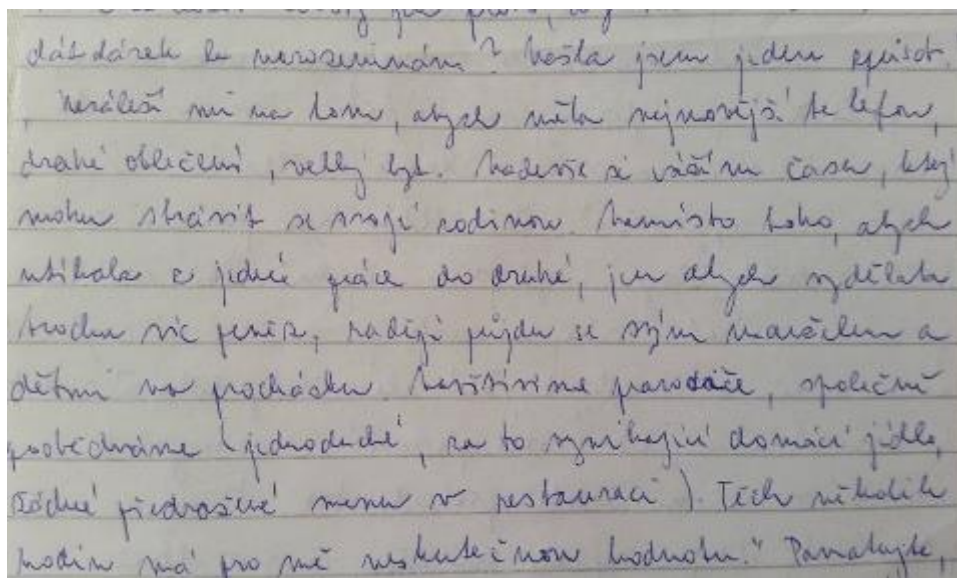 dát dárek k narozeninám? Našla jsem jeden způsob.
Nezáleží mi na tom, abych měla nejnovější telefon,
drahé oblečení, velký byt. Nadevše si vážím času, který
mohu strávit se svojí rodinou. Namísto toho, abych
utíkala z jedné práce do druhé, jen abych vydělala
trochu víc peněz, raději půjdu se svým manželem a
dětmi na procházku. Navštívíme prarodiče, společně
poobědváme (jednoduché, za to vynikající domácí jídlo,
žádné předražené menu v restauraci). Těch několik
hodin má pro mě neskutečnou hodnotu." Pamatujte,